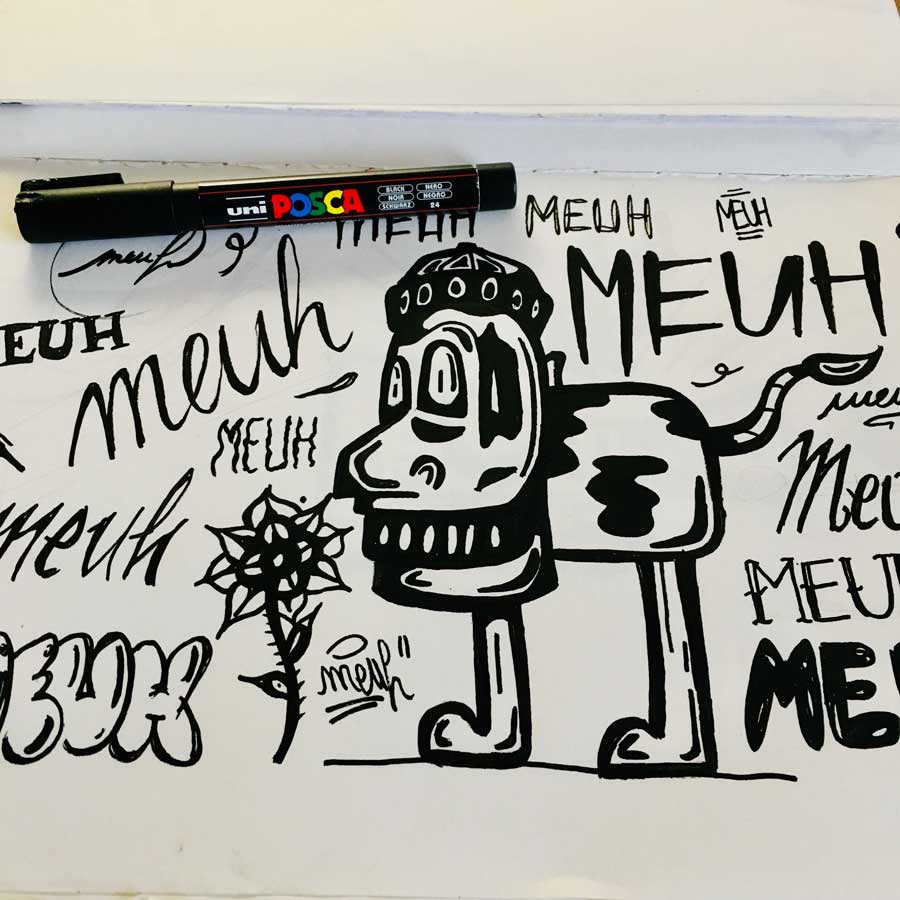 uni POSCA
BLACK NERO
NOIR NEGRO
SCHWARZ 24
MEUH
MEUH
MEUH
meuh
MEUH
EUH
meuh
MEUH
meu
Meu
meuh
MEU
EUH
meuh
MEU